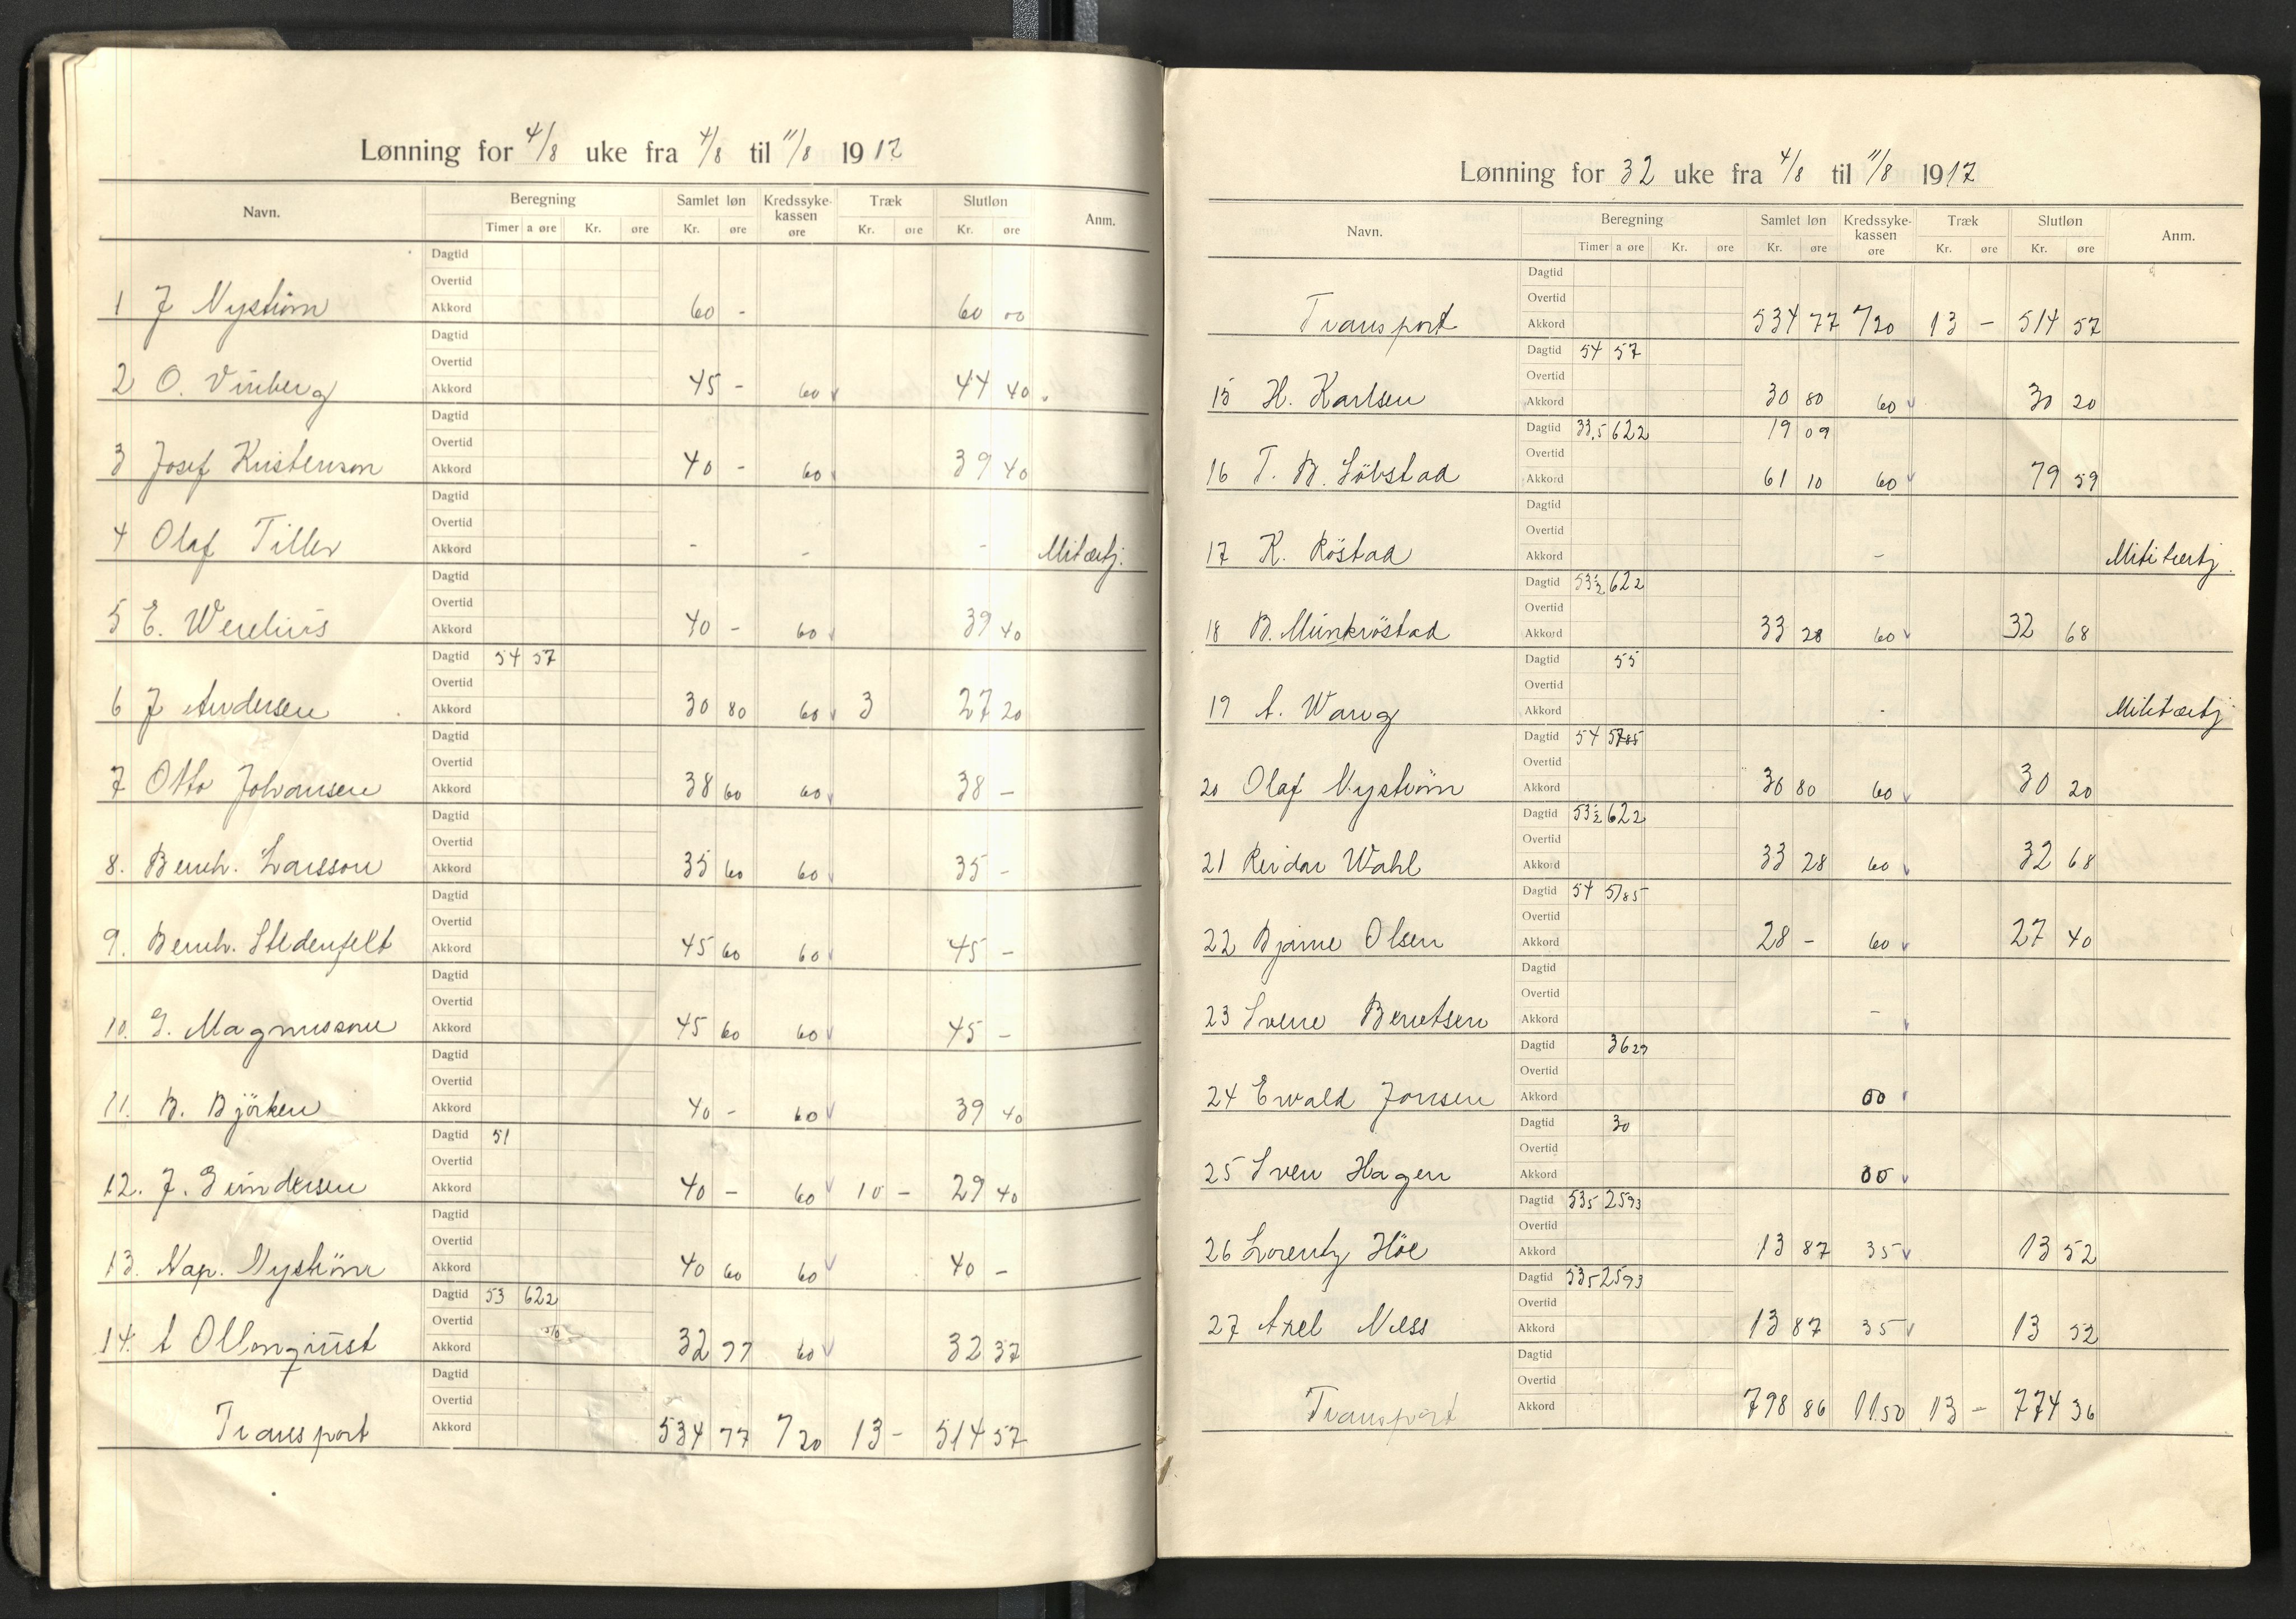 Lønning for 4/8 uke fra 4/8 til 11/8 1917
Navn. Beregning Samlet løn Kredssyke-kassen Træk Slutløn Anm.
Timer a øre Kr. øre Kr. øre øre Kr. øre Kr. øre
Dagtid
Overtid
1 J Nyström Akkord 60 - 60 00
Dagtid
Overtid
2 O. Vinberg Akkord 45 - 60 44 40
Dagtid
Overtid
3 Josef Kristenson Akkord 40 - 60 39 40
Dagtid
Overtid
4 Olaf Tiller Akkord - - - Mitærtj.
Dagtid
Overtid
5 E. Werelius Akkord 40 - 60 39 40
Dagtid 54 57
Overtid
6 J Andersen Akkord 30 80 60 3 27 20
Dagtid
Overtid
7 Otto Johansen Akkord 38 60 60 38 -
Dagtid
Overtid
8. Bernh. Larsson Akkord 35 60 60 35 -
Dagtid
Overtid
9. Bernh. Stedenfelt Akkord 45 60 60 45 -
Dagtid
Overtid
10. G. Magnusson Akkord 45 60 60 45 -
Dagtid
Overtid
11. B. Björken Akkord 40 - 60 39 40
Dagtid 51
Overtid
12. J. Gundersen Akkord 40 - 60 10 - 29 40
Dagtid
Overtid
13. Nap. Nyström Akkord 40 60 60 40 -
Dagtid 53 622
Overtid
14. A Ollonqiust Akkord 32 97 60 32 37
Dagtid
Overtid
Transport Akkord 534 77 7 20 13 - 514 57
Lønning for 32 uke fra 4/8 til 11/8 1917
Navn. Beregning Samlet løn Kredssyke-kassen Træk Slutløn Anm.
Timer a øre Kr. øre Kr. øre øre Kr. øre Kr. øre
Dagtid
Overtid
Transport Akkord 534 77 7 20 13 - 514 57
Dagtid 54 57
Overtid
15 H. Karlsen Akkord 30 80 60 30 20
Dagtid 33,5 622 19 09
Overtid
16 T. B. Löbstad Akkord 61 10 60 79 59
Dagtid
Overtid
17 K. Röstad Akkord - Militærtj.
Dagtid 53½ 622
Overtid
18 B. Munkröstad Akkord 33 28 60 32 68
Dagtid 55
Overtid
19 A. Wang Akkord - Militærtj
Dagtid 54
Overtid
20 Olaf Nyström Akkord 30 80 60 30 20
Dagtid 53½ 622
Overtid
21 Reidar Wahl Akkord 33 28 60 32 68
Dagtid 54 5185
Overtid
22 Bjarne Olsen Akkord 28 - 60 27 40
Dagtid
Overtid
23 Sverre Berntsen Akkord -
Dagtid 3629
Overtid
24 Ewald Jonsen Akkord 00
Dagtid 30
Overtid
25 Sven Hagen Akkord 00
Dagtid 535 2593
Overtid
26 Lorentz Höe Akkord 13 87 35 13 52
Dagtid 535 2593
Overtid
27 Axel Ness Akkord 13 87 35 13 52
Dagtid
Overtid
Transport Akkord 798 86 11 50 13 - 774 36